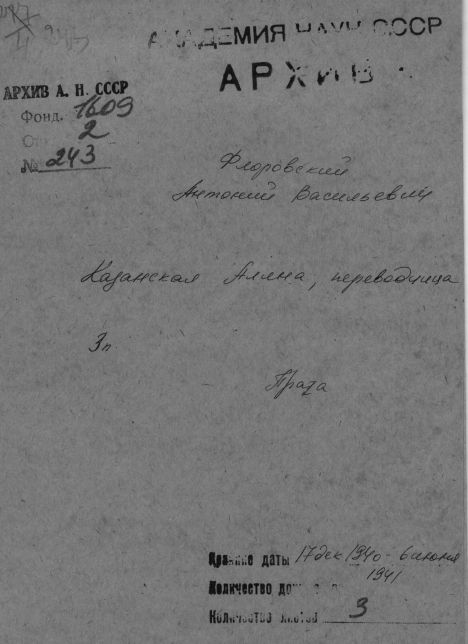 АКАДЕМИЯ НАУК СССР
АРХИВ
АРХИВ А. Н. СССР
Фонд. 1609
Оп. 2
№ 243
Флоровский
Антоний Васильевич
Казанская Алена, переводчица
3 п.
Прага
Крайние даты 17 дек 1940 - 6 июня
1941
Количество
Количество листов 3